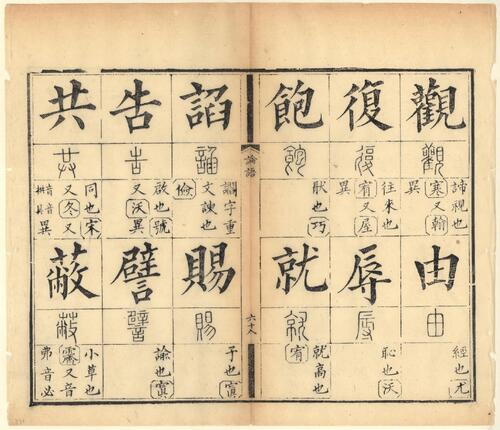 觀
觀
諦視也
寒又翰
異
由
由
經也尤
復
復
往來也
宥又屋
異
辱
辱
恥也沃
飽
飽
猒也巧
就
就
就高也
宥
論語
六十八
諂
諂
讇字重
文諛也
儉
賜
賜
予也寘
告
告
啟也號
又沃異
譬
譬
諭也寘
共
共
同也宋
又冬又
異
蔽
蔽
小草也
霽又音
弗音必